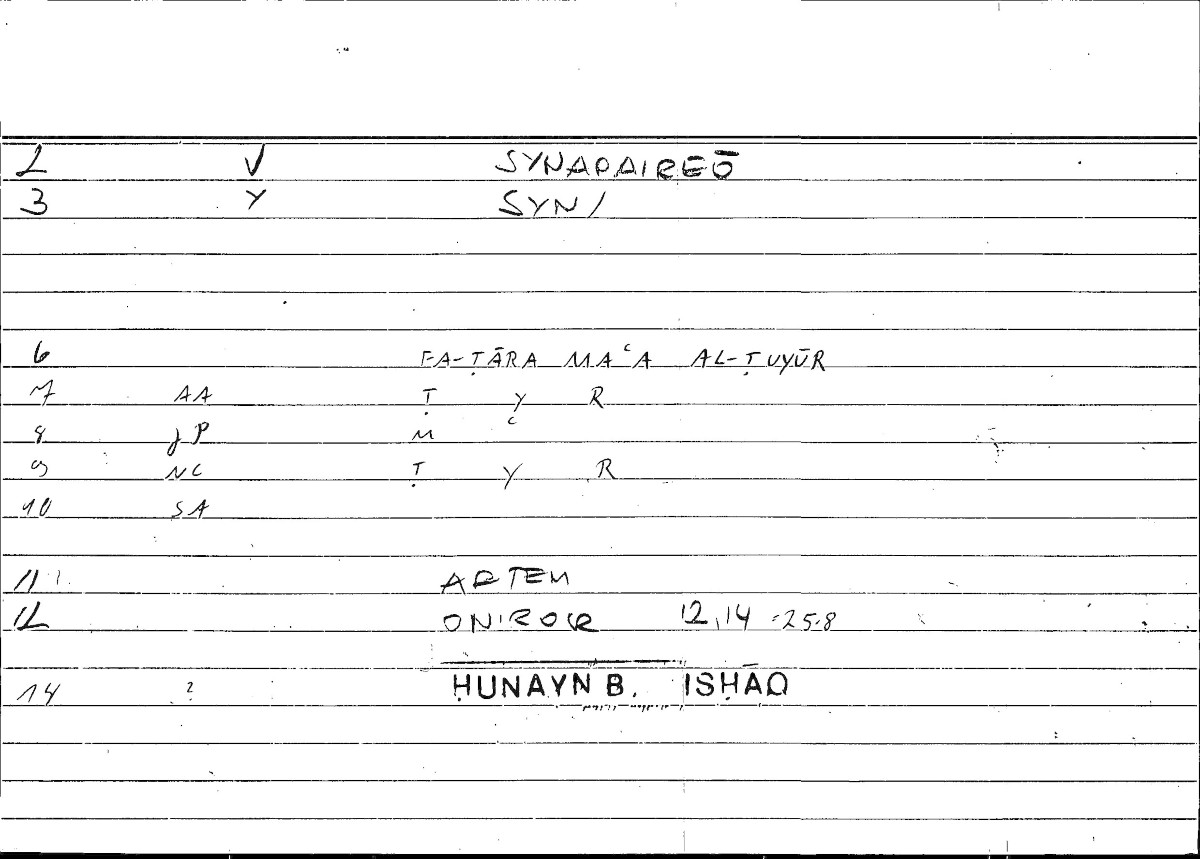 2 V SYNAPAIREŌ
3 Y SYN/
6 FA-ṬĀRA MAʿA AL-ṬUYŪR
7 AA Ṭ Y R
8 JP M ʿ
9 NC Ṭ Y R
10 SA
11 ARTEM
12 ONIROCR 12,14 -25.8
14 2 ḤUNAYN B. ISḤĀQ